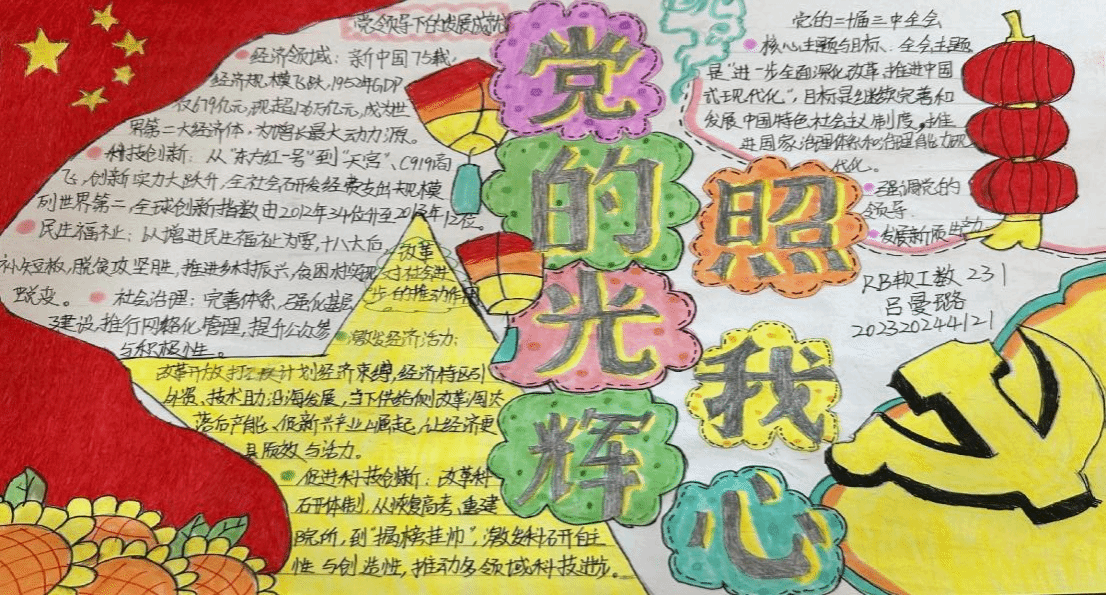 党领导下的发展成就
经济领域：亲新中国75载，
经济规模飞跃，1952年GDP
仅679亿元，现超126万亿元，成为世
界第二大经济体，为增长最大动力源。
科技创新：从“东方红一号”到“天宫”、C919高
飞，创新实力大跃升，全社会研发经费支出规模
列世界第二，全球创新指数由2012年34位升至年12位。
民生福祉：以增进民生福祉为要，十八大后，
补短板，脱贫攻坚胜，推进乡村振兴，贫困村实现
蜕变。
社会治理：完善体系，强化基层
建设，推行网格化管理，提升公众参
与积极性。
改革
对社会进
步的推动作用
激发经济活力：
改革开放打破计划经济束缚，经济特区引
外资、技术助沿海发展，当下供给侧改革淘汰
落后产能、促新兴产业崛起，让经济更
具质效与活力。
促进科技创新：改革科
研体制，从恢复高考、重建
院所，到“揭榜挂帅”，激发科研自主
性与创造性，推动多领域科技进步。
党的光辉
照我心
党的二十届三中全会
核心主题与目标：全会主题
是“进一步全面深化改革、推进中国
式现代化”，目标是继续完善和
发展中国特色社会主义制度，推
进国家治理体系和治理能力现
代化。
强调党的
领导
发展新质生产力
RB机工数231
吕曼璐
202320244121